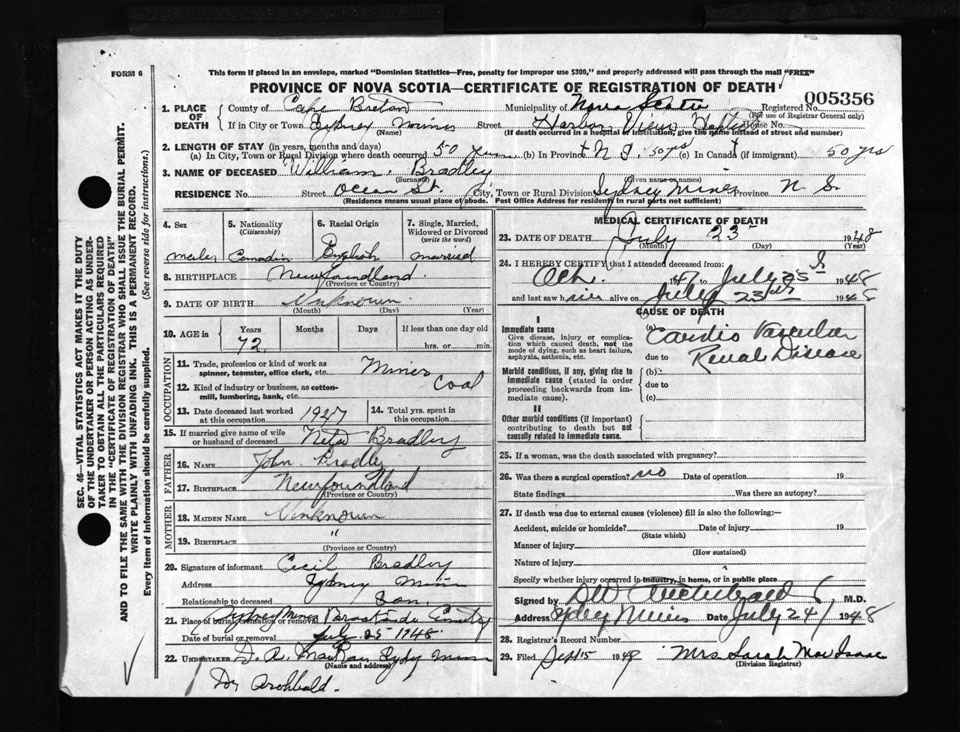 FORM 6
This form if placed in an envelope, marked "Dominion Statistics—Free, penalty for improper use $300," and properly addressed will pass through the mail "FREE"
PROVINCE OF NOVA SCOTIA—CERTIFICATE OF REGISTRATION OF DEATH
005356
1. PLACE OF DEATH County of Cape Breton Municipality of Nova Scotia Registered No.
(For use of Registrar General only)
If in City or Town Sydney Mines Street Harbor View House No.
(Name) (If death occurred in a hospital or institution, give the name instead of street and number)
2. LENGTH OF STAY (in years, months and days)
(a) In City, Town or Rural Division where death occurred 50 years (b) in Province N.S. 50 yrs (c) In Canada (if immigrant) 50 yrs
3. NAME OF DECEASED William Bradley
(Surname) (Given name or names)
RESIDENCE No. Street Ocean St. City, Town or Rural Division Sydney Mines Province N.S.
(Residence means usual place of abode. Post Office Address for residents in rural parts not sufficient)
4. Sex 5. Nationality (Citizenship) 6. Racial Origin 7. Single, Married, Widowed or Divorced (write the word)
English married
8. BIRTHPLACE Newfoundland
(Province or Country)
9. DATE OF BIRTH Unknown
(Month) (Day) (Year)
10. AGE in Years Months Days If less than one day old
72 hrs. or min.
OCCUPATION
11. Trade, profession or kind of work as spinner, teamster, office clerk, etc. Miner
12. Kind of industry or business, as cotton-mill, lumbering, bank, etc. Coal
13. Date deceased last worked at this occupation 1927 14. Total yrs. spent in this occupation
15. If married give name of wife or husband of deceased Neta Bradley
FATHER
16. NAME John Bradley
17. BIRTHPLACE Newfoundland
(Province or Country)
MOTHER
18. MAIDEN NAME Unknown
19. BIRTHPLACE "
(Province or Country)
20. Signature of informant Cecil Bradley
Address Sydney Mines
Relationship to deceased Son
21. Place of burial, cremation or removal Sydney Mines
Date of burial or removal July 25 1948
22. UNDERTAKER D. A. Sydney Mines
(Name and address)
Dr Archbald.
MEDICAL CERTIFICATE OF DEATH
23. DATE OF DEATH July 23 1948
(Month) (Day) (Year)
24. I HEREBY CERTIFY that I attended deceased from:
Oct. 47 to July 23 1948
and last saw him alive on July 23 1948
CAUSE OF DEATH
I
Immediate cause (a) Cardio Vascular
Give disease, injury or complication which caused death, not the mode of dying, such as heart failure, asphyxia, asthenia, etc. due to Renal Disease
Morbid conditions, if any, giving rise to immediate cause (stated in order proceeding backwards from immediate cause). (b) due to
(c)
II
Other morbid conditions (if important) contributing to death but not causally related to immediate cause.
25. If a woman, was the death associated with pregnancy?
26. Was there a surgical operation? no Date of operation 19
State findings Was there an autopsy?
27. If death was due to external causes (violence) fill in also the following:—
Accident, suicide or homicide? Date of injury 19
(State which)
Manner of injury
(How sustained)
Nature of injury
Specify whether injury occurred in industry, in home, or in public place
Signed by M.D.
Address Sydney Mines Date July 24 1948
28. Registrar's Record Number
29. Filed Sept 15 1948 Mrs Sarah MacIsaac
(Division Registrar)
SEC. 46—VITAL STATISTICS ACT MAKES IT THE DUTY OF THE UNDERTAKER OR PERSON ACTING AS UNDERTAKER TO OBTAIN ALL THE PARTICULARS REQUIRED IN THE "CERTIFICATE OF REGISTRATION OF DEATH" AND TO FILE THE SAME WITH THE DIVISION REGISTRAR WHO SHALL ISSUE THE BURIAL PERMIT.
WRITE PLAINLY WITH UNFADING INK. THIS IS A PERMANENT RECORD.
Every item of information should be carefully supplied. (See reverse side for instructions.)